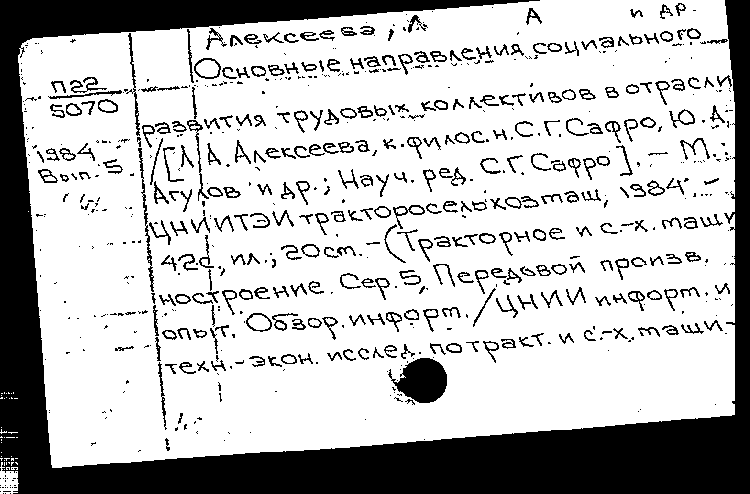 Алексеева, Л А и др.
Основные направления социального
П22
5070
1984
Вып. 5.
развития трудовых коллективов в отрасли
/[Л. А. Алексеева, к. филос. н. С. Г. Сафро, Ю. А.
Агулов и др.; Науч. ред. С. Г. Сафро]. – М.:
ЦНИИТЭИтракторосельхозмаш, 1984. –
42с., ил.; 20см. – (Тракторное и с.-х. маши
ностроение. Сер. 5, Передовой произв.
опыт. Обзор. информ. / ЦНИИ информ. и
техн.-экон. исслед. по тракт. и с.-х. маши-